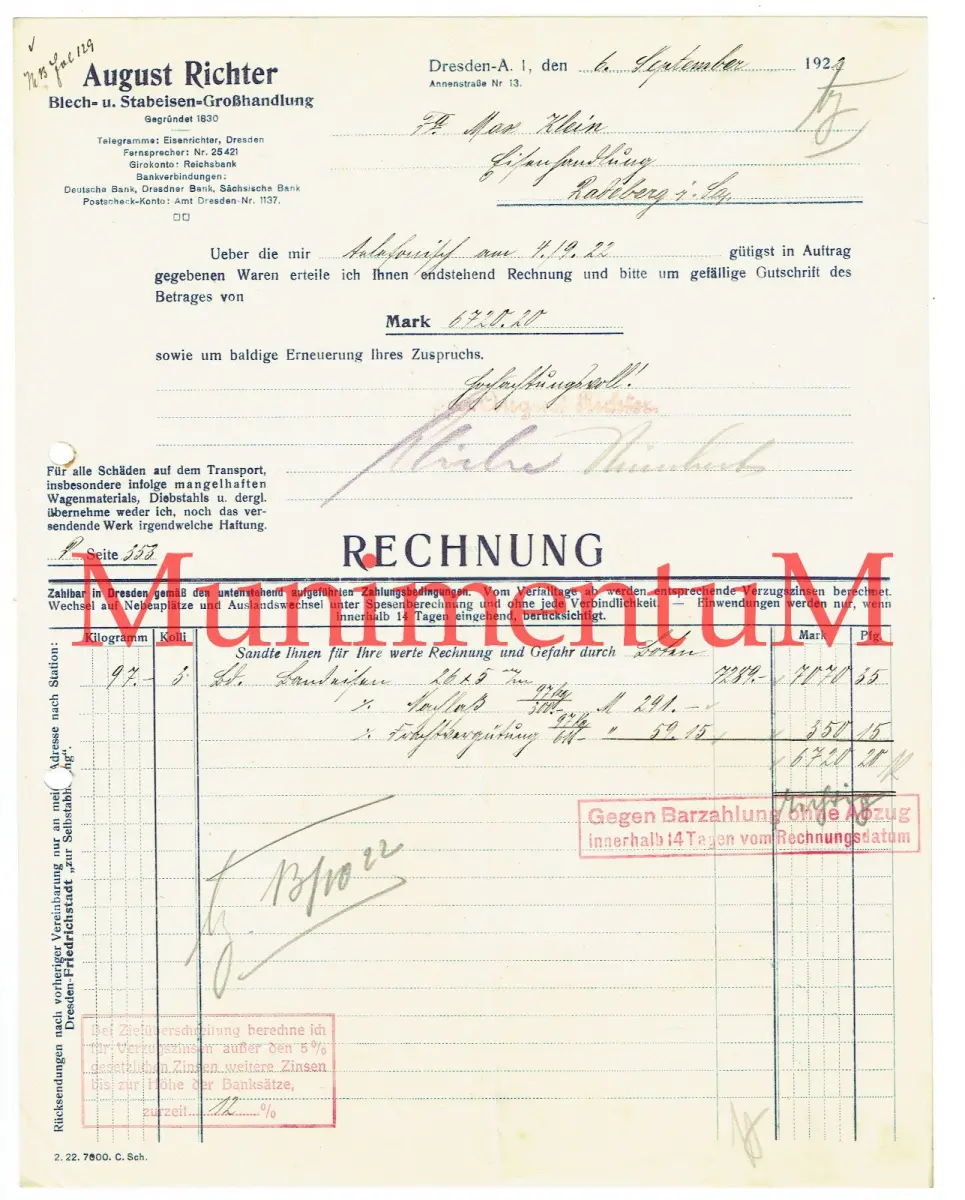 August Richter
Blech- u. Stabeisen-Großhandlung
Gegründet 1830
Telegramme: Eisenrichter, Dresden
Fernsprecher: Nr. 25421
Girokonto: Reichsbank
Bankverbindungen:
Deutsche Bank, Dresdner Bank, Sächsische Bank
Postscheck-Konto: Amt Dresden-Nr. 1137.
Dresden-A. 1, den 6. September 1922
Annenstraße Nr 13.
Fa. Max Klein
Eisenhandlung
Radeberg i. Sa.
Ueber die mir telefonisch am 4./9. 22 gütigst in Auftrag
gegebenen Waren erteile ich Ihnen endstehend Rechnung und bitte um gefällige Gutschrift des
Betrages von
Mark 6720.20
sowie um baldige Erneuerung Ihres Zuspruchs.
Hochachtungsvoll!
August Richter.
Für alle Schäden auf dem Transport,
insbesondere infolge mangelhaften
Wagenmaterials, Diebstahls u. dergl.
übernehme weder ich, noch das ver-
sendende Werk irgendwelche Haftung.
Seite 353
RECHNUNG
MunimentuM
Zahlbar in Dresden gemäß den untenstehend aufgeführten Zahlungsbedingungen. Vom Verfalltage ab werden entsprechende Verzugszinsen berechnet.
Wechsel auf Nebenplätze und Auslandswechsel unter Spesenberechnung und ohne jede Verbindlichkeit. — Einwendungen werden nur, wenn
innerhalb 14 Tagen eingehend, berücksichtigt.
Kilogramm Kolli Mark Pfg.
Sandte Ihnen für Ihre werte Rechnung und Gefahr durch Boten
97.- 3 Bd. Bandeisen 26x5 m/m 7289.- 7070 35
% Nachlaß 97kg 300.- M 291.-
% Frachtvergütung 97kg " 59.15 350 15
6720 20
richtig
Gegen Barzahlung ohne Abzug
innerhalb 14 Tagen vom Rechnungsdatum
13/10 22
Rücksendungen nach vorheriger Vereinbarung nur an meine Adresse nach Station:
Dresden-Friedrichstadt „zur Selbstabholung“.
Bei Zielüberschreitung berechne ich
für Verzugszinsen außer den 5%
gesetzlichen Zinsen weitere Zinsen
bis zur Höhe der Banksätze,
zurzeit 12 %
2. 22. 7000. C. Sch.